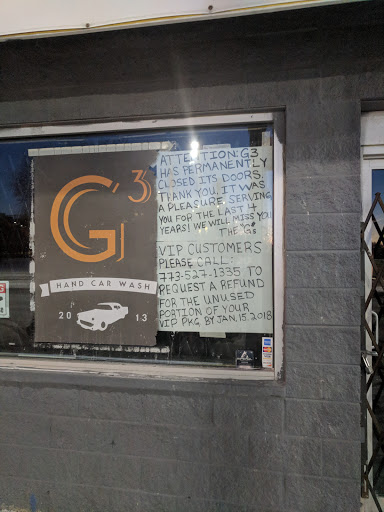 G3
HAND CAR WASH
20 13
ATTENTION: G3
HAS PERMANENTLY
CLOSED ITS DOORS.
THANK YOU, IT WAS
A PLEASURE SERVING
YOU FOR THE LAST 4
YEARS! WE WILL MISS YOU
THE G's
VIP CUSTOMERS
PLEASE CALL:
773-527-1335 TO
REQUEST A REFUND
FOR THE UNUSED
PORTION OF YOUR
VIP PKG. BY JAN. 15. 2018